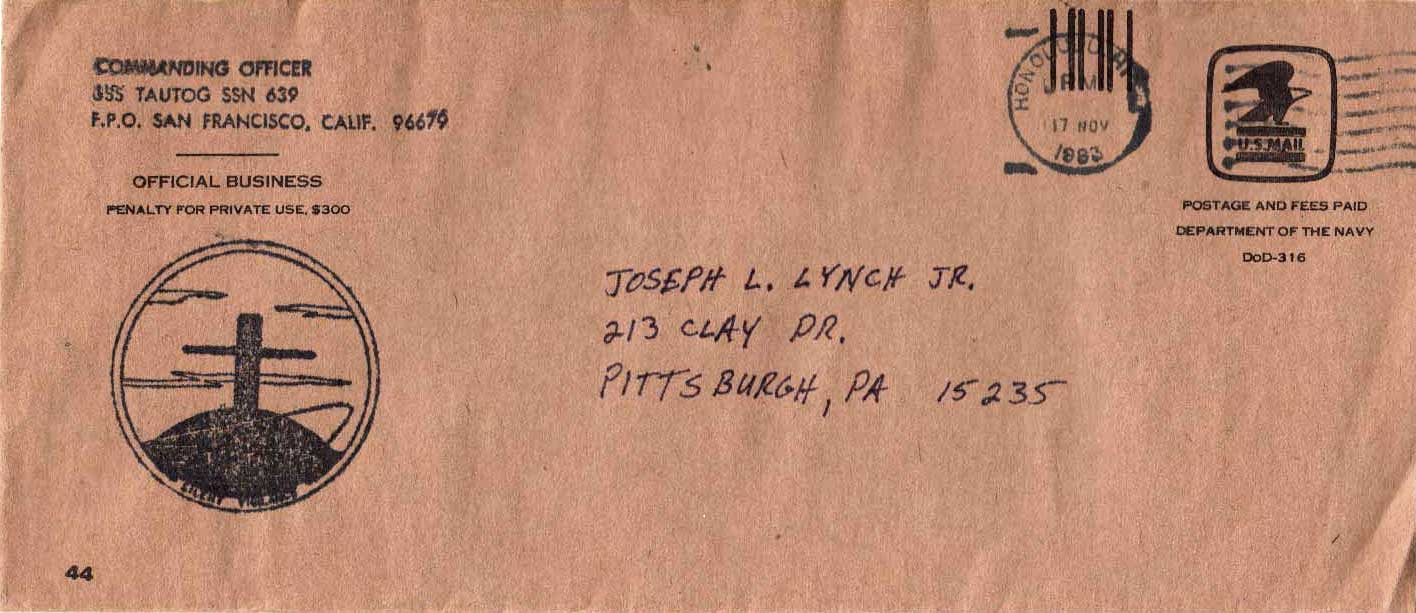 COMMANDING OFFICER
USS TAUTOG SSN 639
F.P.O. SAN FRANCISCO, CALIF. 96679
OFFICIAL BUSINESS
PENALTY FOR PRIVATE USE, $300
SILENT VIGILANCE
44
HONOLULU
P.M.
17 NOV
1983
U.S.MAIL
POSTAGE AND FEES PAID
DEPARTMENT OF THE NAVY
DoD-316
JOSEPH L. LYNCH JR.
213 CLAY DR.
PITTSBURGH, PA 15235